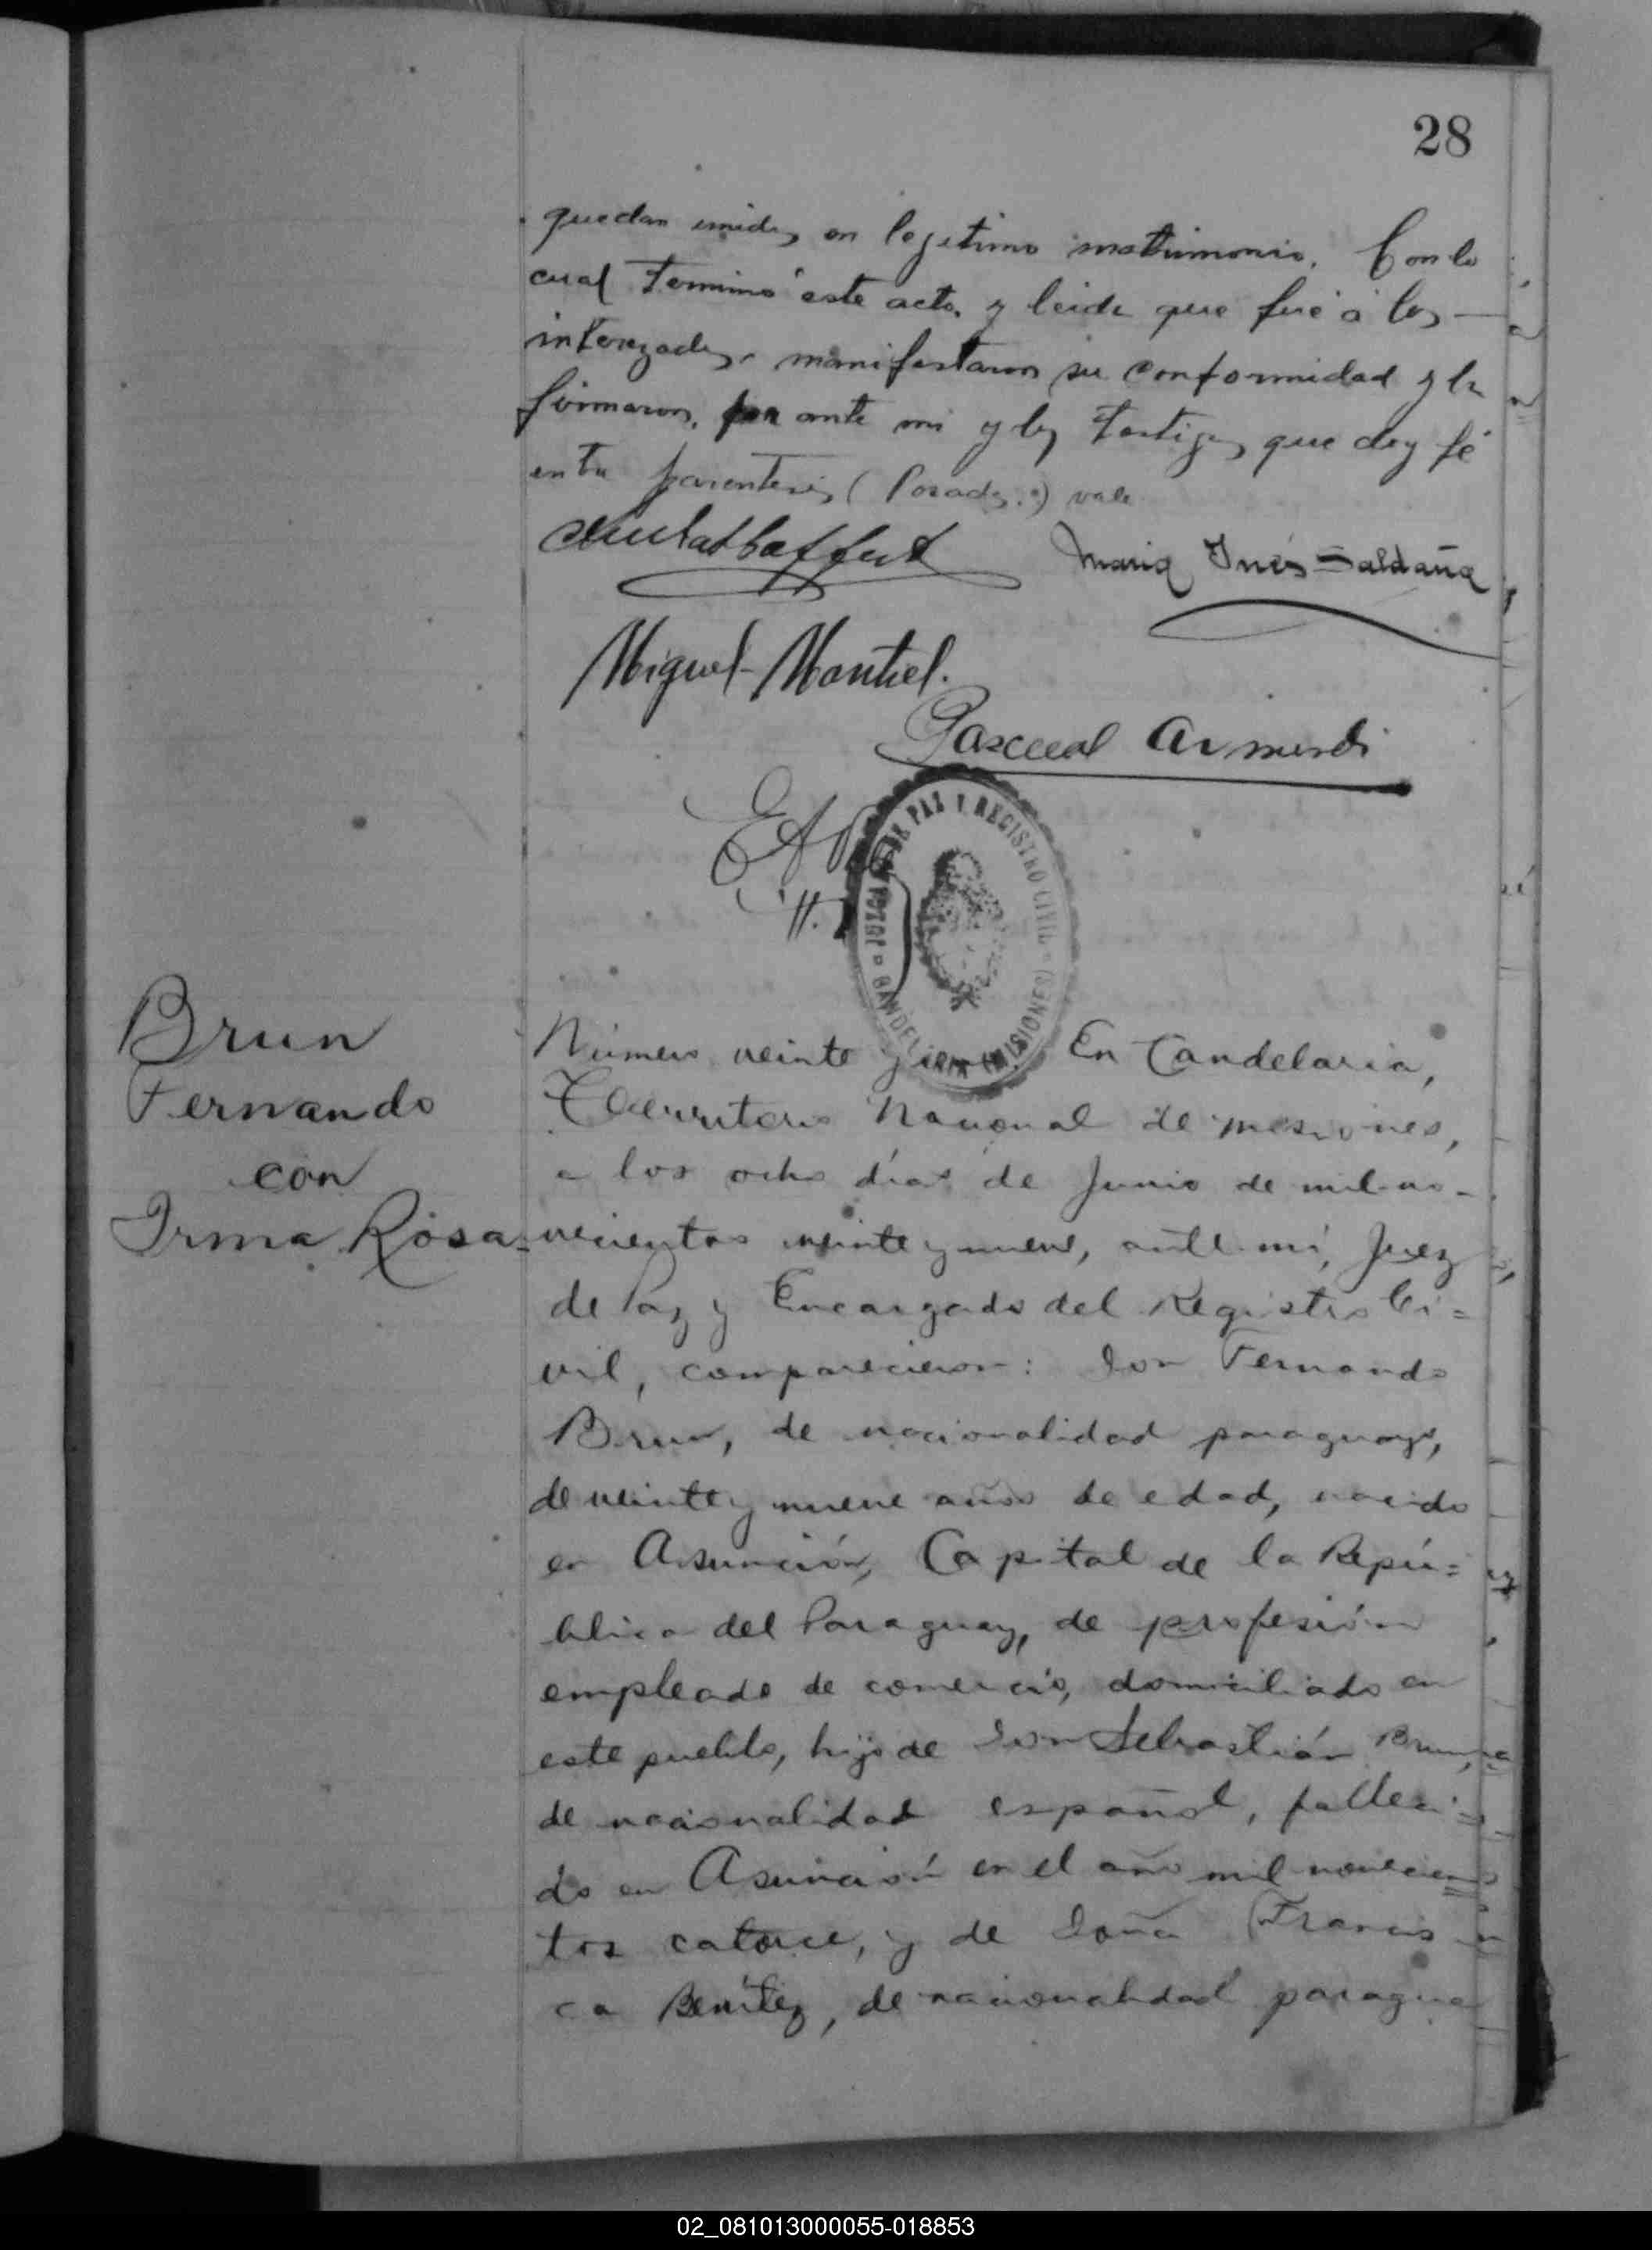 28
quedan unidos en legitimo matrimonio. Con lo
cual termino este acto. y leida que fué á los
interezados, manifestaron su conformidad y la
firmaron, por ante mi y los testigos que doy fé
entre parentesis (Posadas.) vale
Maria Inés Saldaña
Miguel Montiel.
Pascual Armendi
JUZGADO DE PAZ Y REGISTRO CIVIL
CANDELARIA (MISIONES)
Brun
Fernando
con
Irma Rosa
Número veinte y En Candelaria,
Territorio Nacional de Misiones,
a los ocho días de Junio de mil no-
vecientos veinte y nueve, ante mí, Juez
de Paz y Encargado del Registro Ci=
vil, comparecieron: Don Fernando
Brun, de nacionalidad paraguayo,
de veinte y nueve años de edad, nacido
en Asunción, Capital de la Repú=
blica del Paraguay, de profesión
empleado de comercio, domiciliado en
este pueblo, hijo de Don Sebastián Brun,
de nacionalidad español, falleci=
do en Asunción en el año mil novecien=
tos catorce, y de Doña Francis
ca Benítez, de nacionalidad paragua
02_081013000055-018853